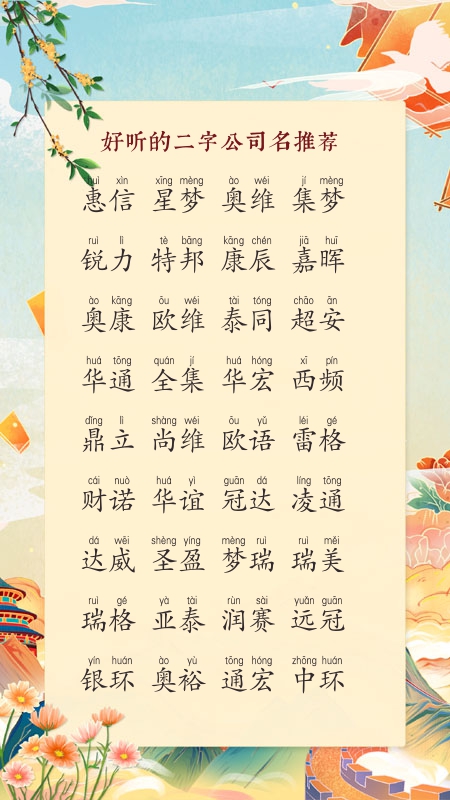 好听的二字公司名推荐
huì xìn xīng mèng ào wéi jí mèng
惠信 星梦 奥维 集梦
ruì lì tè bāng kāng chén jiā huī
锐力 特邦 康辰 嘉晖
ào kāng ōu wéi tài tóng chāo ān
奥康 欧维 泰同 超安
huá tōng quán jí huá hóng xī pín
华通 全集 华宏 西频
dǐng lì shàng wéi ōu yǔ léi gé
鼎立 尚维 欧语 雷格
cái nuò huá yì guān dá líng tōng
财诺 华谊 冠达 凌通
dá wēi shèng yíng mèng ruì ruì měi
达威 圣盈 梦瑞 瑞美
ruì gé yà tài rùn sài yuǎn guān
瑞格 亚泰 润赛 远冠
yín huán ào yù tōng hóng zhōng huán
银环 奥裕 通宏 中环